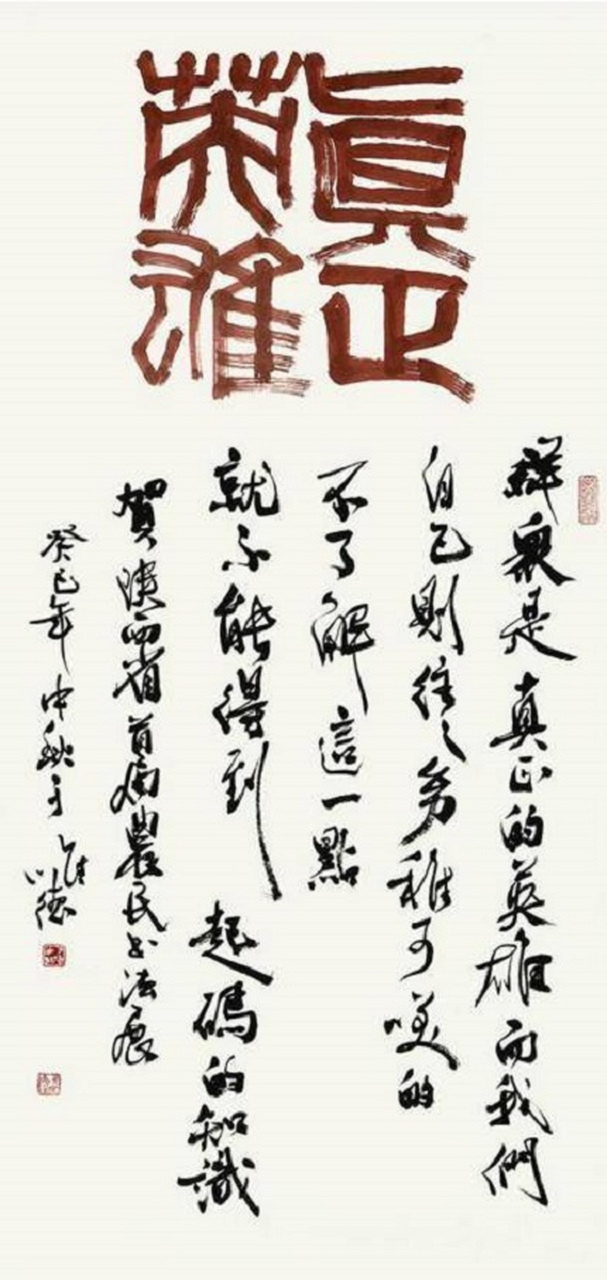 真正
英雄
群衆是真正的英雄而我們
自己則往々幼稚可笑的
不了解這一點
就不能得到
起碼的知識
賀陝西省首届農民書法展
癸巳年中秋於